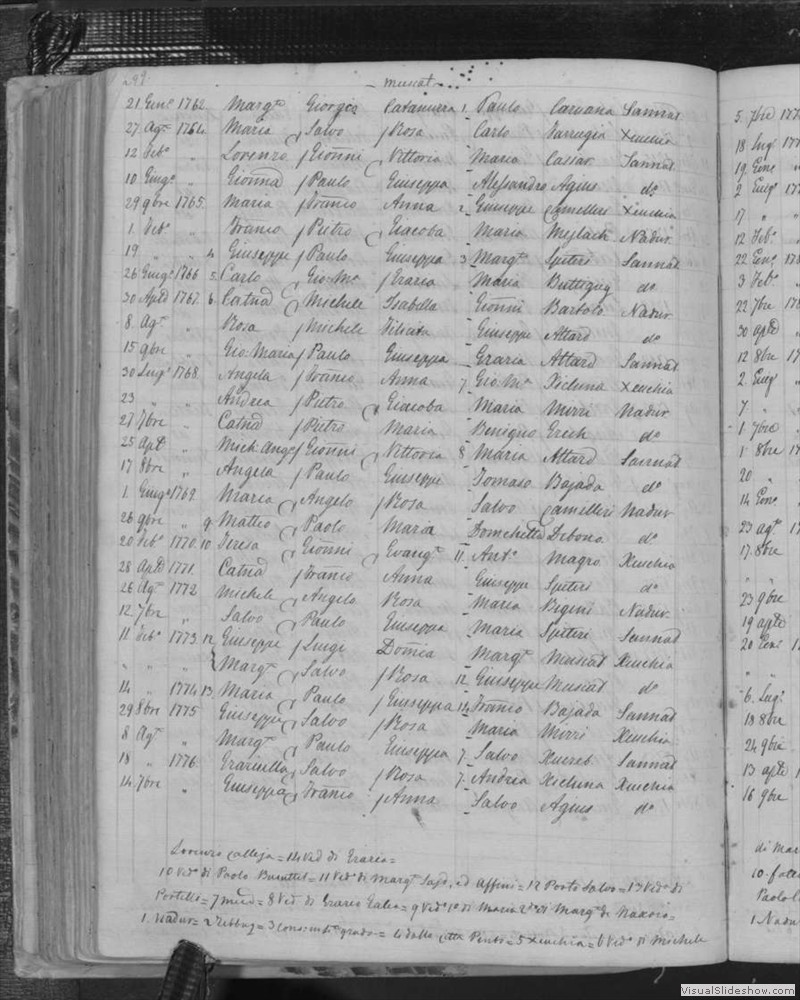 299
Muscat
21 Genº 1762 Margª Giorgio Catarurra 1. Paulo Caruana Sannat
27 Agº 1764 Maria Salvo Rosa Carlo Farrugia Xeuchia
12 Febº " Lorenzo Gionni Vittoria Maria Cassar Sannat
10 Giugº " Gionna Paulo Giuseppa Alessandro Agius dº
29 9bre 1765 Maria Franco Anna 2 Giuseppe Camilleri Xeuchia
1. Febº " Franco Pietro Giacoba Maria Mejlach Nadur
19 " " 4 Giuseppe Paulo Giuseppa 3 Margª Spiteri Sannat
26 Giugº 1766 5 Carlo Gio: Mª Grazia Maria Buttigieg dº
30 Aple 1767 6 Catnª Michele Isabella Gionni Bartolo Nadur
8 Agº " Rosa Michele Felicita Giuseppe Attard dº
15 9bre " Gio: Maria Paulo Giuseppa Grazia Attard Sannat
30 Lugº 1768 Angela Franco Anna 7 Gio: Mª Xicluna Xeuchia
23 " " Andrea Pietro Giacoba Maria Mizzi Nadur
27 7bre " Catnª Pietro Maria Benigno Grech dº
25 Aple " Mich: Ange Gionni Vittoria 8 Maria Attard Sannat
17 8bre " Angela Paulo Giuseppe Tomaso Bajada dº
1. Giugº 1769 Maria Angelo Rosa Salvo Camilleri Nadur
26 9bre " 9 Matteo Paolo Maria Domchella Debono dº
20 Febº 1770 10 Teresa Gionni Evangª 11 Antº Magro Xeuchia
28 Aple 1771 Catnª Franco Anna Giuseppe Spiteri dº
26 Agº 1772 Michele Angelo Rosa Maria Bigeni Nadur
12 7bre " Salvo Paulo Giuseppa Maria Spiteri Sannat
11 Febº 1773 12 Giuseppe Luigi Domca Margª Muscat Xeuchia
" " " Margª Salvo Rosa 12 Giuseppe Muscat dº
14 " 1774 13 Maria Paulo Giuseppa 14 Franco Bajada Sannat
29 8bre 1775 Giuseppe Salvo Rosa Maria Mizzi Xeuchia
8 Agº " Margª Paulo Giuseppa 7 Salvo Xuereb Sannat
18 " 1776 Graziella Salvo Rosa 7 Andrea Xicluna Xeuchia
14 7bre " Giuseppa Franco Anna Salvo Agius dº
Lorenzo Calleja = 14 Ved di Grazia =
10 Vedº di Paolo Buttel = 11 Vedº di Margª Said, ed affini = 12 Porto Salvo = 13 Vedº di
Portelli = 7 = 8 Ved di Grazia Galea = 9 Vedº 1º di Maria 2º di Margª di Naxaro =
1. Nadur = 2 Zebbug = 3 grado = 4 dalla Città Pinto = 5 Xeuchia = 6 Vedº di Michele
5 7bre 177
18 Lugº 177
19 Genº "
2 Giugº 177
17 " "
12 Febº "
22 Genº 178
3 Febº "
22 7bre 178
30 aple "
12 8bre 17
2 Giugº "
7 "
1 7bre "
1 8bre 17
20 "
14 Genº "
23 agº 17
17 8bre
" "
23 9bre
19 aple
20 Genº 17
" "
6 Lugº
18 8bre
24 9bre
13 aple
16 9bre
di Mar
Paolo C
1. Nadu
VisualSlideshow.com